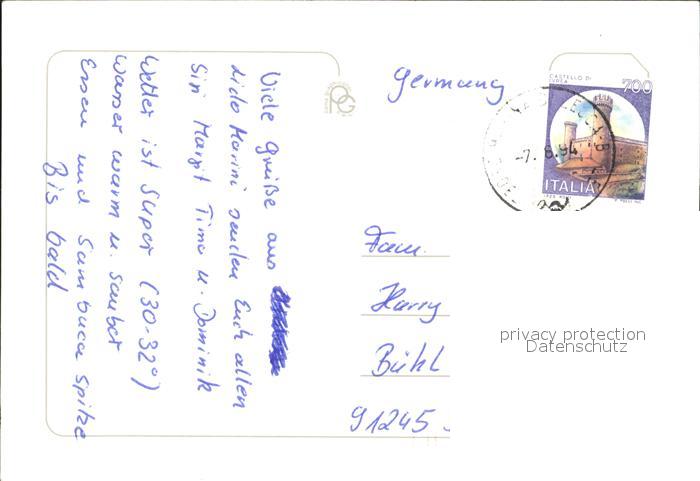 Viele Grüße aus
Lido Marini senden Euch allen
Siri Margit Timo u. Dominik
Wetter ist Super (30-32°)
Wasser warm u. sauber
Essen und Sambuca Spitze
Bis bald
germany
CASTELLO DI
IVREA
700
-7.8.94
ITALIA
Fam.
Harry
Bühl
91245
privacy protection
Datenschutz